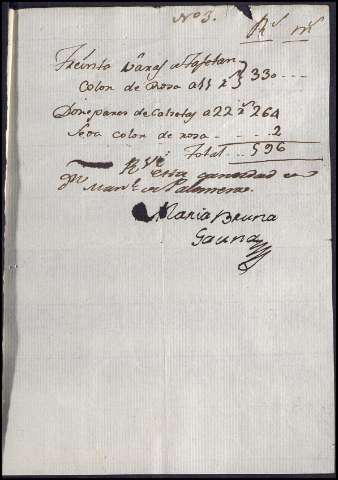 Nº 3.
Rˢ mˢ
Treinta Varas de Tafetan
Color de Rosa a 11 rˢ 330
Doze pares de Calcetas a 22 rˢ 264
Seda color de rosa 2
Total 596
Rvi esta cantidad
Manˡ
Maria Bruna
Gauna